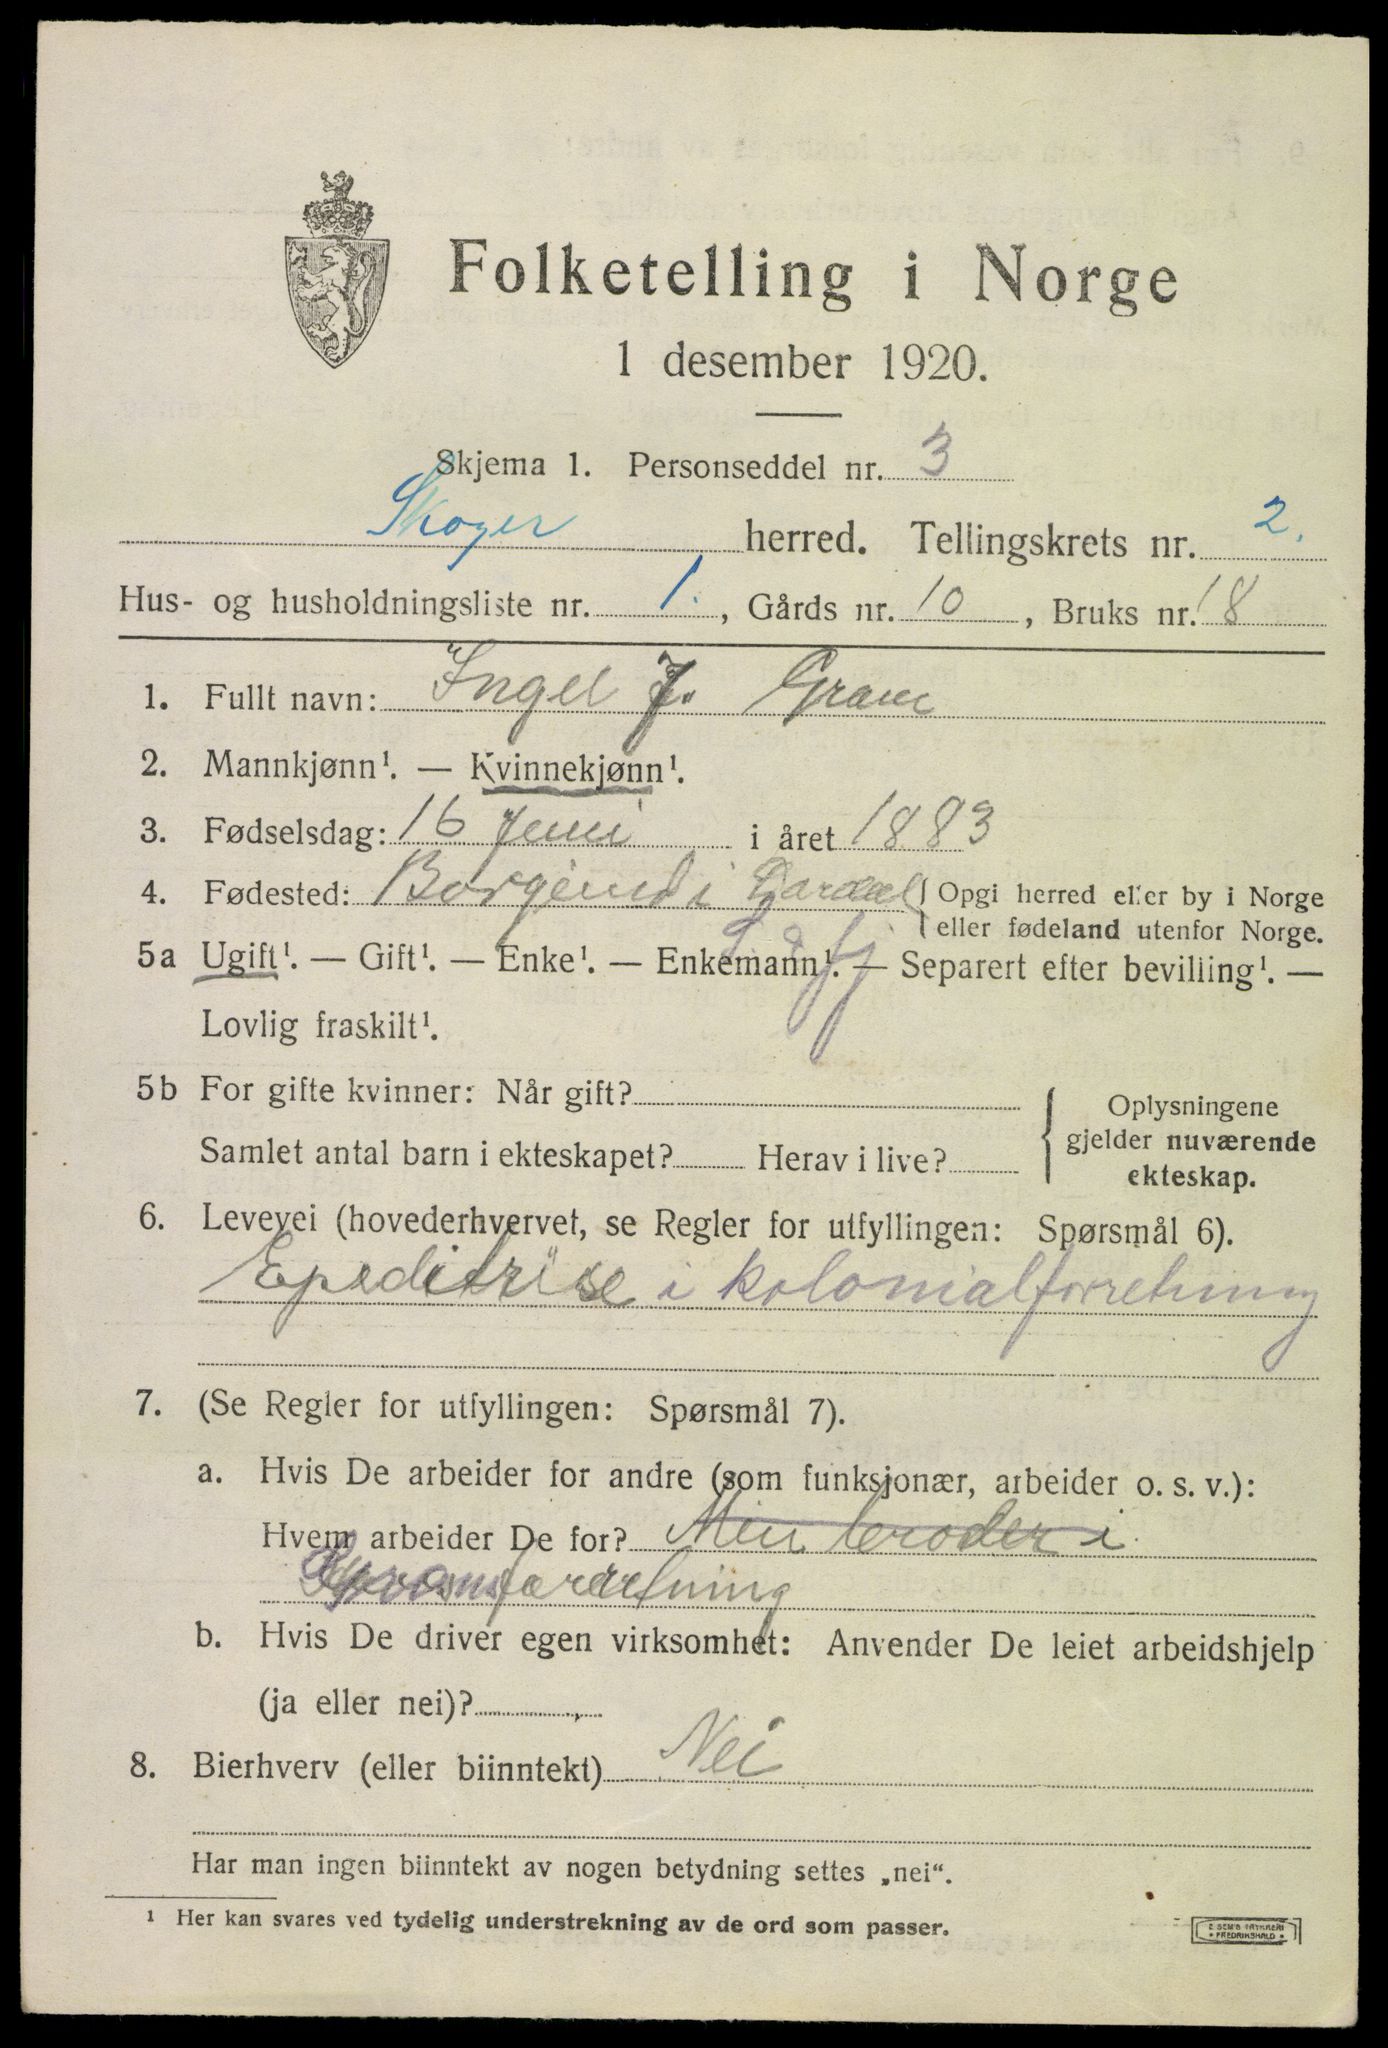 Folketelling i Norge
1 desember 1920.
Skjema 1. Personseddel nr. 3
Skoger herred. Tellingskrets nr. 2.
Hus- og husholdningsliste nr. 1. , Gårds nr. 10 , Bruks nr. 18
1. Fullt navn: Ingel J. Gram
2. Mannkjønn¹. — Kvinnekjønn¹.
3. Fødselsdag: 16 Juni i året 1883
4. Fødested: Borgund i { Opgi herred eller by i Norge
eller fødeland utenfor Norge.
5a Ugift¹. — Gift¹. — Enke¹. — Enkemann¹. — Separert efter bevilling¹. —
Lovlig fraskilt¹.
5b For gifte kvinner: Når gift?
Samlet antal barn i ekteskapet? Herav i live?
{ Oplysningene
gjelder nuværende
ekteskap.
6. Levevei (hovederhvervet, se Regler for utfyllingen: Spørsmål 6).
Epeditrise i kolonialforretning
7. (Se Regler for utfyllingen: Spørsmål 7).
a. Hvis De arbeider for andre (som funksjonær, arbeider o. s. v.):
Hvem arbeider De for? Min broder i
forretning
b. Hvis De driver egen virksomhet: Anvender De leiet arbeidshjelp
(ja eller nei)?
8. Bierhverv (eller biinntekt) Nei
Har man ingen biinntekt av nogen betydning settes „nei“.
¹ Her kan svares ved tydelig understrekning av de ord som passer.
E SEM'S TRYKKERI
• FREDRIKSHALD •